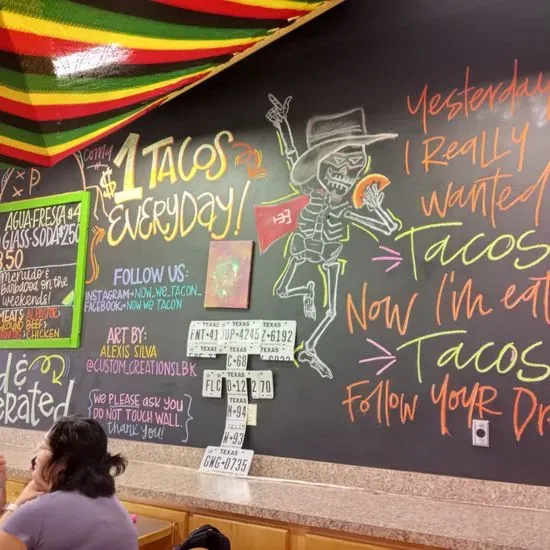 COMING
$1 TACOS
EVERYDAY!
XP
AGUA-FRESCA $4
GLASS-SODA $2.50
3.50
menudo &
Barbacoa on the
weekends!
MEATS: AL PASTOR,
GROUND BEEF,
& CHICKEN
FOLLOW US:
INSTAGRAM: NOW_WE_TACON_
FACEBOOK: NOW WE TACON
ART BY:
ALEXIS SILVA
@CUSTOM.CREATIONSLBK
WE PLEASE ask you
DO NOT TOUCH WALL.
thank you!
d &
erated
TEXAS
TEXAS
TEXAS
FNT•41
DP•4245
Z•6192
TEXAS
C•68
TEXAS
FLC
D•12
270
TEXAS
H•94
W•93
TEXAS
GWG•0735
Yesterday
I Really
wanted
Tacos
Now I'm eat
Tacos
Follow YOUR Dr